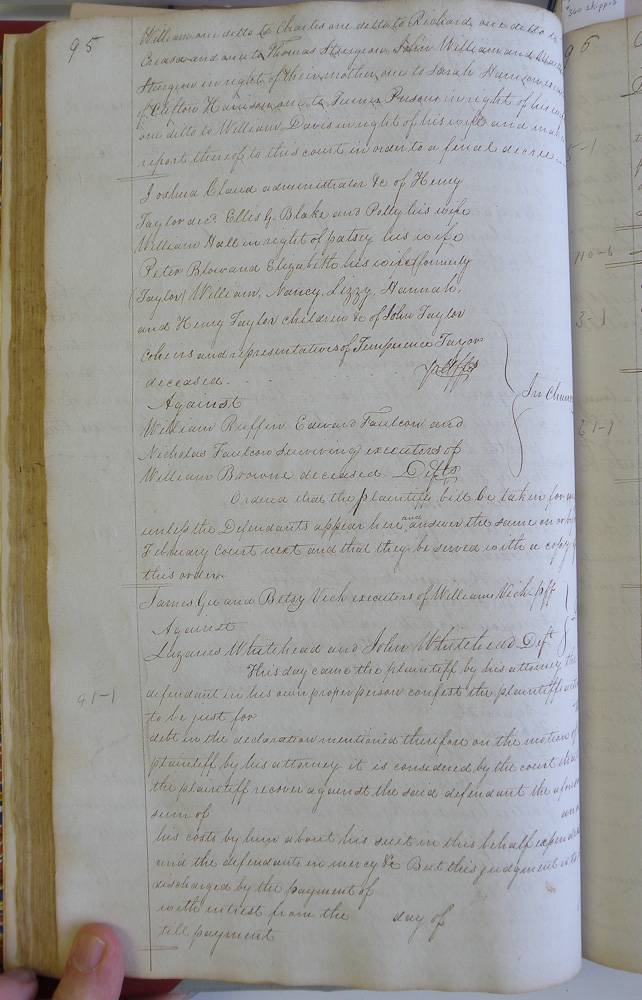 95
William one ditto to Charles one ditto to Richard one ditto to
Creasa and one to Thomas Sturgeon, John William and
Sturgeon in right of their mother, one to Sarah Harrison
of Clifton Harrison one to James Parsons in right of his wife
one ditto to William Davis in right of his wife and make
report thereof to this court in order to a final decree
Joshua Claud administrator &c of Henry
Taylor decd. Ellis G. Blake and Polly his wife
William Hall in right of patsey his wife
Peter Blow and Elizabeth his wife (formerly
Taylor) William, Nancy, Lizzy, Hannah,
and Henry Taylor children &c of John Taylor
coheirs and representatives of Temperence Taylor
deceased. Pltffs
Against
In Chance
William Ruffin Edward Faulcon and
Nicholas Faulcon surviving executors of
William Browne deceased Defts
Ordered that the plaintiffs bill be taken for
unless the Defendants appear here and answer the same on or
February Court next and that they be served with a copy of
this order
James Gee and Betsy Vick executors of William Vick plff
Against
Lazarus Whitehead and John Whitehead Deft
This day came the plaintiff by his attorney the
defendant in his own proper person confest the plaintiffs
91-1
to be just for
debt in the declaration mentioned therefore on the motion of
plaintiff by his attorney it is considered by the court that
the plaintiff recover against the said defendant the afores
sum of and
his costs by him about his suit in this behalf expended
and the defendants in mercy &c But this judgment is to
discharged by the payment of
with intrest from the day of
till payment
96
5-1
110-6
3-1
61-1